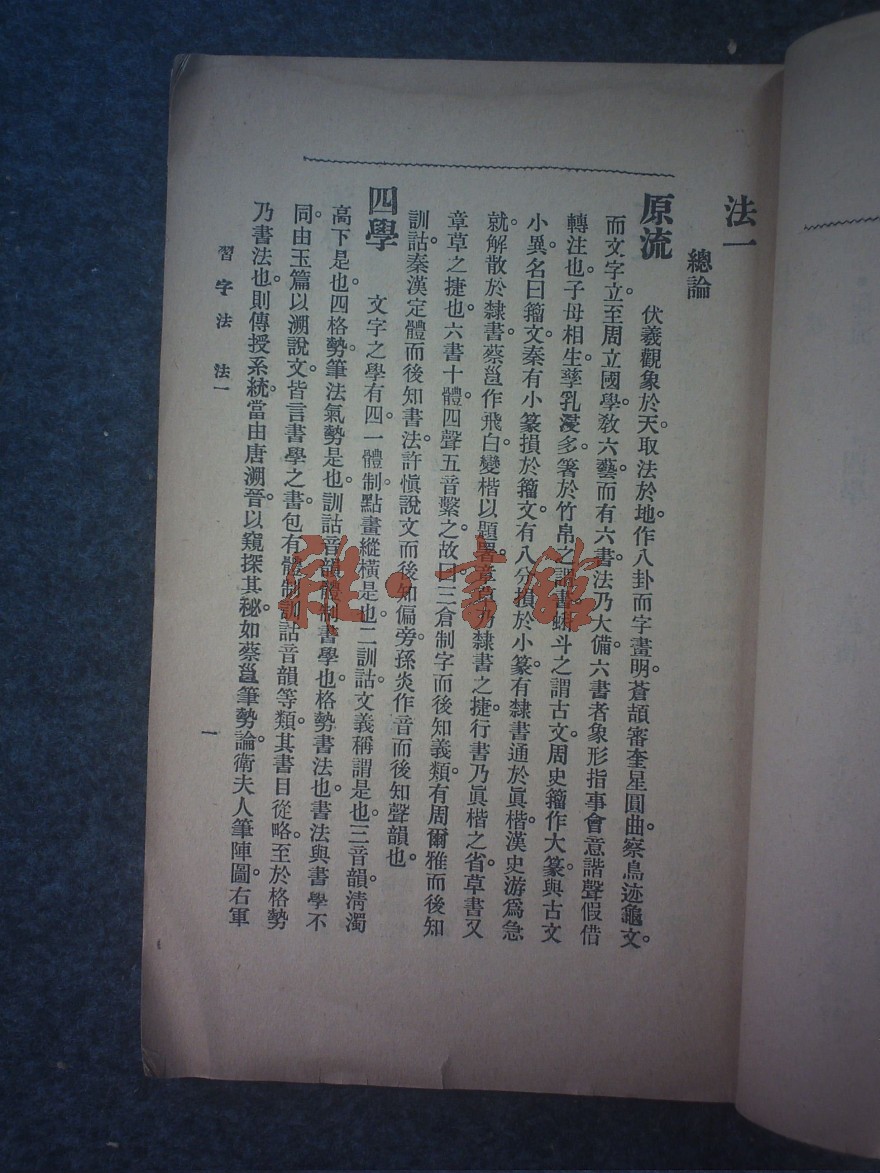 法一
總論
原流
伏羲觀象於天。取法於地。作八卦而字畫明。蒼頡審奎星圓曲。察鳥迹龜文。
而文字立。至周立國學。敎六藝而有六書。法乃大備。六書者象形指事會意諧聲假借
轉注也。子母相生。孳乳寖多。箸於竹帛之謂書。蝌斗之謂古文。周史籀作大篆。與古文
小異。名曰籀文。秦有小篆。損於籀文。有八分。損於小篆。有隸書。通於眞楷。漢史游爲急
就。解散於隸書。蔡邕作飛白。變楷以題署。章草乃隸書之捷。行書乃眞楷之省。草書又
章草之捷也。六書十體四聲五音繫之。故曰三倉制字而後知義類。有周爾雅而後知
訓詁。秦漢定體而後知書法。許愼說文而後知偏旁。孫炎作音而後知聲韻也。
四學
文字之學有四。一體制。點畫縱橫是也。二訓詁。文義稱謂是也。三音韻。淸濁
高下是也。四格勢。筆法氣勢是也。訓詁音韻體制。書學也。格勢。書法也。書法與書學不
同。由玉篇以溯說文。皆言書學之書。包有體制訓詁音韻等類。其書目從略。至於格勢
乃書法也。則傳授系統。當由唐溯晉。以窺探其秘。如蔡邕筆勢論。衛夫人筆陣圖。右軍
習字法 法一
一
雜·書館